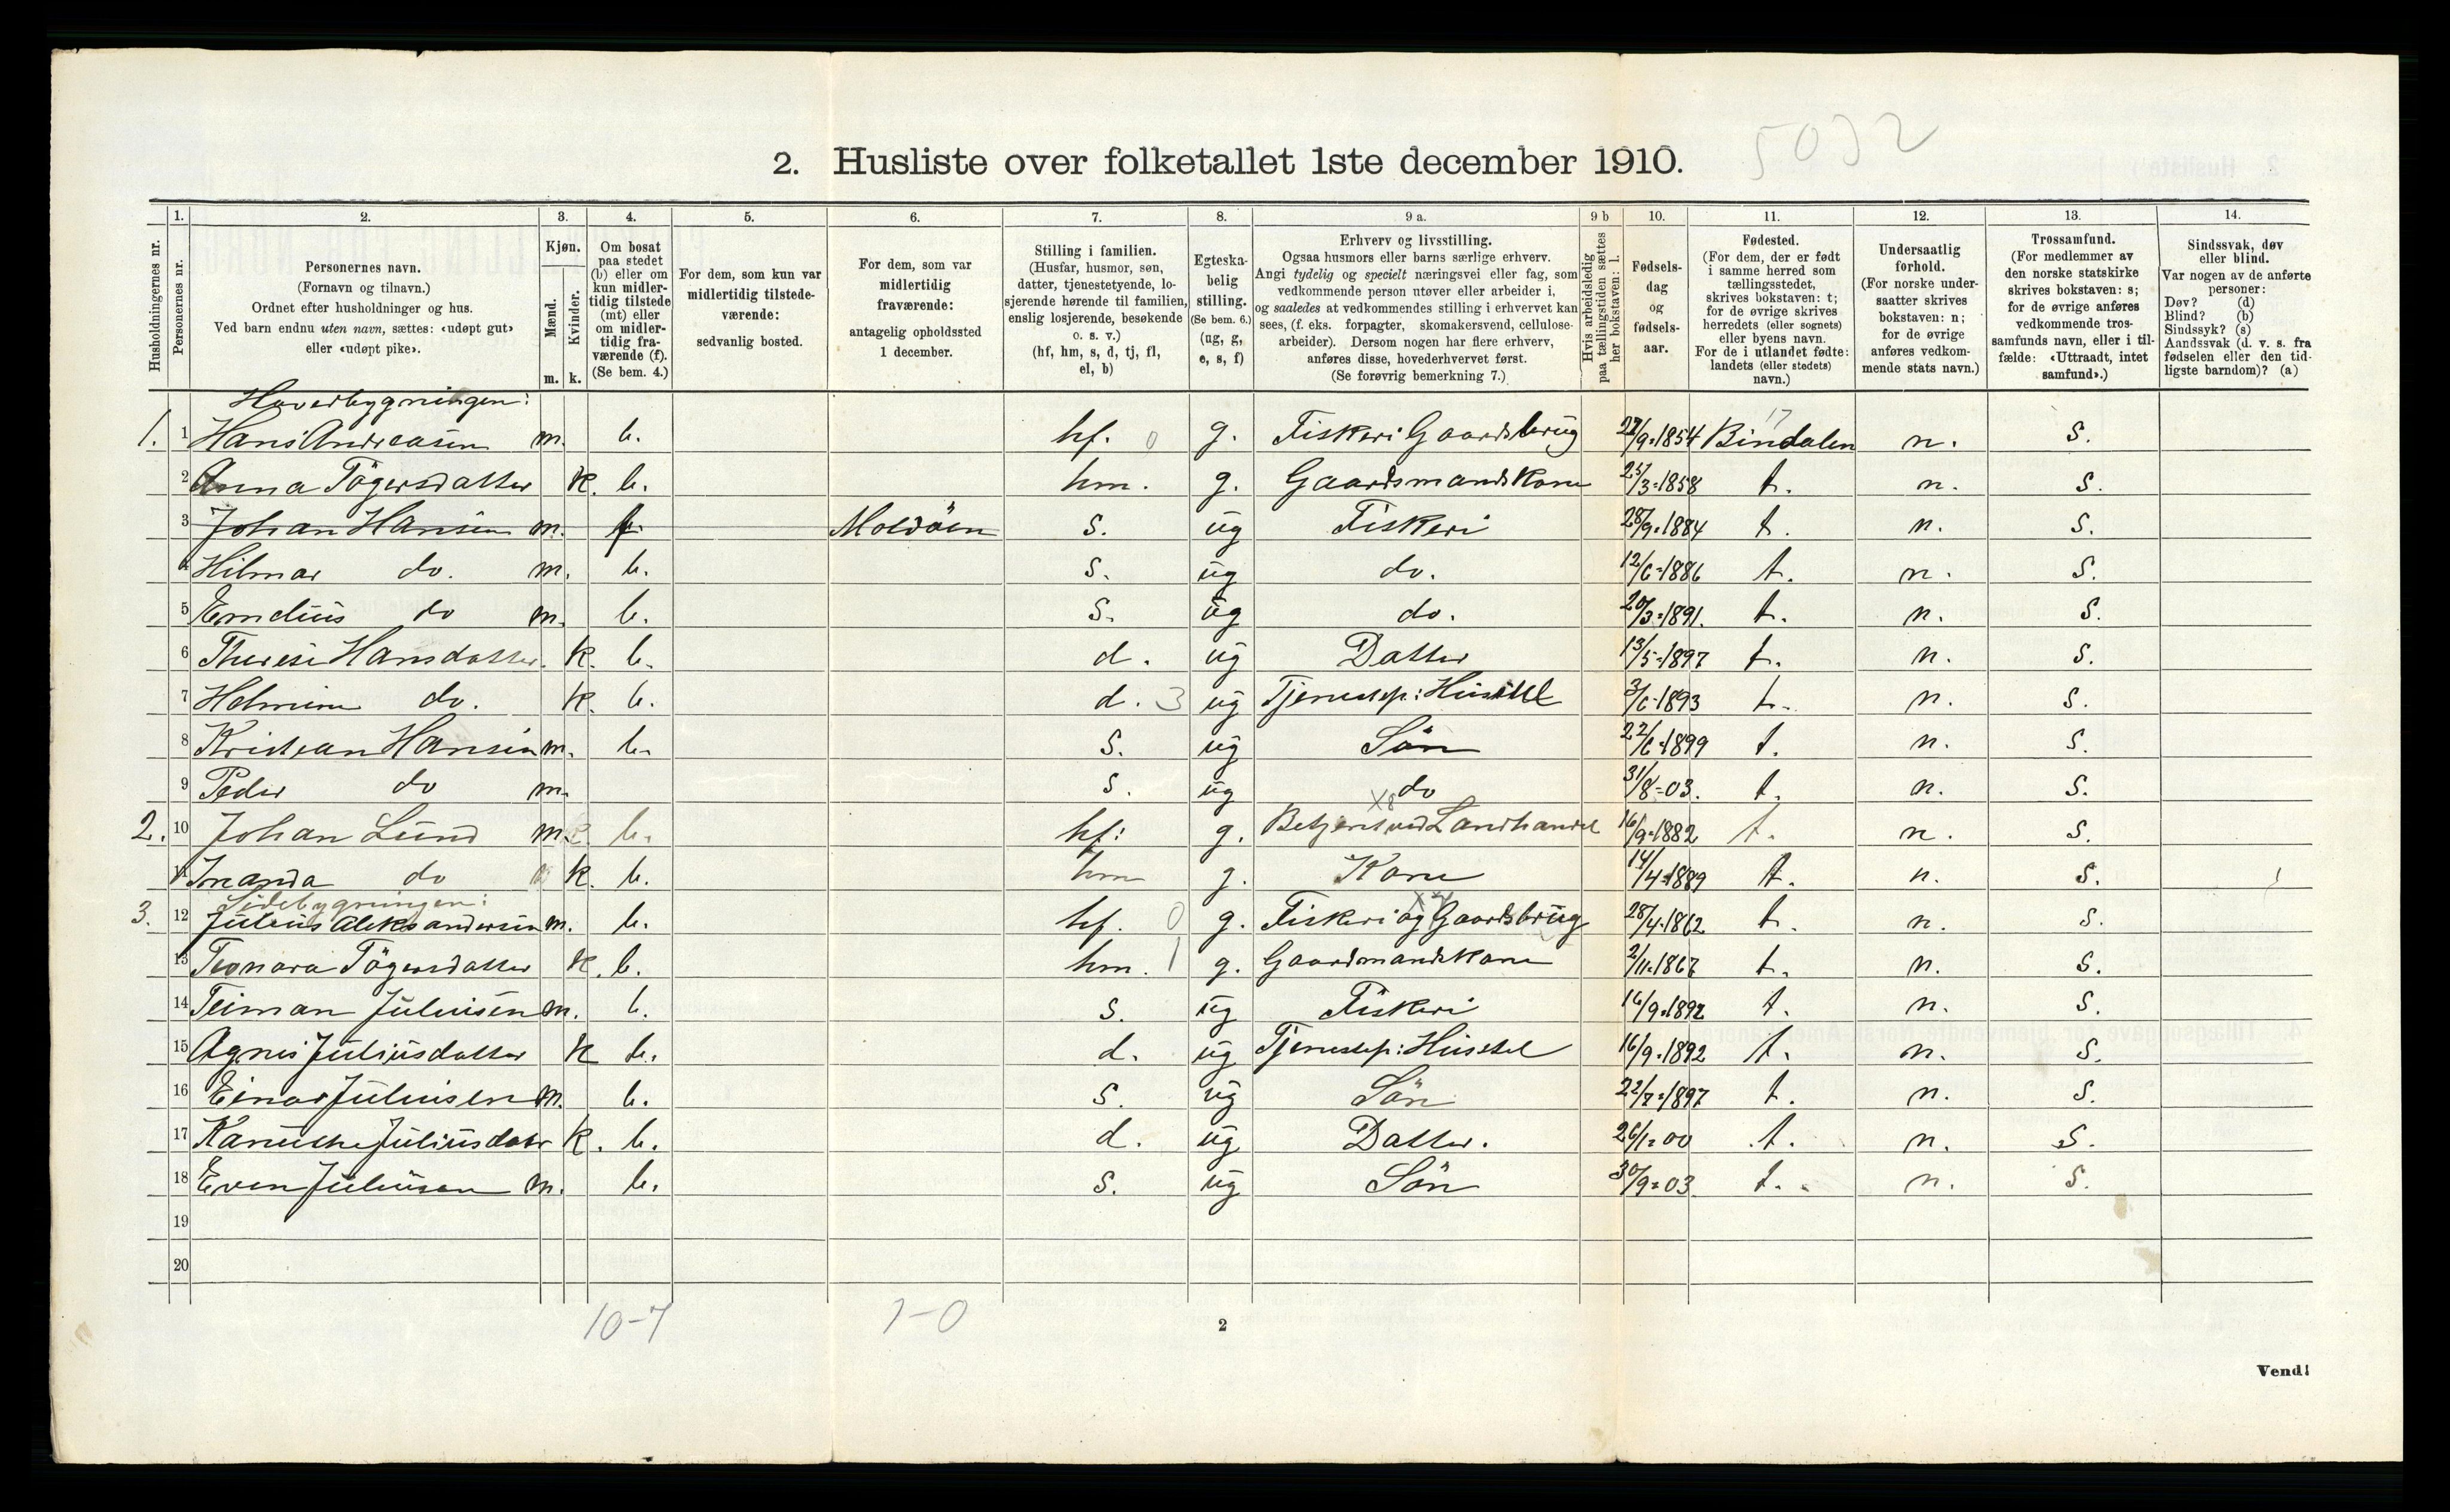 5032
2. Husliste over folketallet 1ste december 1910.
Husholdningernes nr.
1. Personernes nr.
2. Personernes navn.
(Fornavn og tilnavn.)
Ordnet efter husholdninger og hus.
Ved barn endnu uten navn, sættes: «udøpt gut»
eller «udøpt pike».
3. Kjøn.
Mænd. m.
Kvinder. k.
4. Om bosat
paa stedet
(b) eller om
kun midler-
tidig tilstede
(mt) eller
om midler-
tidig fra-
værende (f).
(Se bem. 4.)
5. For dem, som kun var
midlertidig tilstede-
værende:
sedvanlig bosted.
6. For dem, som var
midlertidig
fraværende:
antagelig opholdssted
1 december.
7. Stilling i familien.
(Husfar, husmor, søn,
datter, tjenestetyende, lo-
sjerende hørende til familien,
enslig losjerende, besøkende
o. s. v.)
(hf, hm, s, d, tj, fl,
el, b)
8. Egteska-
belig
stilling.
(Se bem. 6.)
(ug, g,
e, s, f)
9 a. Erhverv og livsstilling.
Ogsaa husmors eller barns særlige erhverv.
Angi tydelig og specielt næringsvei eller fag, som
vedkommende person utøver eller arbeider i,
og saaledes at vedkommendes stilling i erhvervet kan
sees, (f. eks. forpagter, skomakersvend, cellulose-
arbeider). Dersom nogen har flere erhverv,
anføres disse, hovederhvervet først.
(Se forøvrig bemerkning 7.)
9 b Hvis arbeidsledig
paa tællingstiden sættes
her bokstaven: l.
10. Fødsels-
dag
og
fødsels-
aar.
11. Fødested.
(For dem, der er født
i samme herred som
tællingsstedet,
skrives bokstaven: t;
for de øvrige skrives
herredets (eller sognets)
eller byens navn.
For de i utlandet fødte:
landets (eller stedets)
navn.)
12. Undersaatlig
forhold.
(For norske under-
saatter skrives
bokstaven: n;
for de øvrige
anføres vedkom-
mende stats navn.)
13. Trossamfund.
(For medlemmer av
den norske statskirke
skrives bokstaven: s;
for de øvrige anføres
vedkommende tros-
samfunds navn, eller i til-
fælde: «Uttraadt, intet
samfund».)
14. Sindssvak, døv
eller blind.
Var nogen av de anførte
personer:
Døv? (d)
Blind? (b)
Sindssyk? (s)
Aandssvak (d. v. s. fra
fødselen eller den tid-
ligste barndom)? (a)
Hovedbygningen:
1. 1 Hans Andreasen m. b. hf. 0 g. Fiskeri Gaardsbrug 27/9-1854 17 Bindalen n. S.
2 Anna Tögersdatter k. b. hm. g. Gaardsmandskone 25/3-1858 t. n. S.
3 Johan Hansen m. f Moldöen S. ug Fiskeri 28/9-1884 t. n. S.
4 Hilmar do. m. b. S. ug do. 12/6-1886 t. n. S.
5 Emelius do m. b. S. ug do. 20/3-1891. t. n. S.
6 Therese Hansdatter. k. b. d. ug Datter 13/5-1897 t. n. S.
7 Helmine do. k. b. d. 3 ug Tjenestep: Husstel 3/6-1893 t. n. S.
8 Kristian Hansen m. b. S. ug Sön 22/6-1899 t. n. S.
9 Peder do m. S. ug do 31/8-03. t. n. S.
2. 10 Johan Lund m. b. hf: g. X8 Betjent ved Landhandel 16/9-1882 t. n. S.
11 Inanda do k. b. hm g. Kone 14/4-1889 t. n. S.
Sidebygningen:
3. 12 Julius Aleksandersen m. b. hf. 0 g. Fiskeri og Gaardsbrug 28/4-1862 t. n. S.
13 Leonora Tögersdatter k. b. hm. 1 g. Gaardmandskone 2/11-1867 t. n. S.
14 Teiman Juliusen m. b. S. ug Fiskeri 16/9-1892 t. n. S.
15 Agnes Juliusdatter k b. d. ug Tjenestep: Husstel 16/9-1892 t. n. S.
16 Einar Juliusen m. b. S. ug Sön 22/7-1897 t. n. S.
17 Juliusdatr k. b. d. ug Datter. 26/1-00 t. n. S.
18 Even Juliusen m. b. S. ug Sön 30/9-03 t. n. S.
19
20
10-7 1-0
2
Vend!